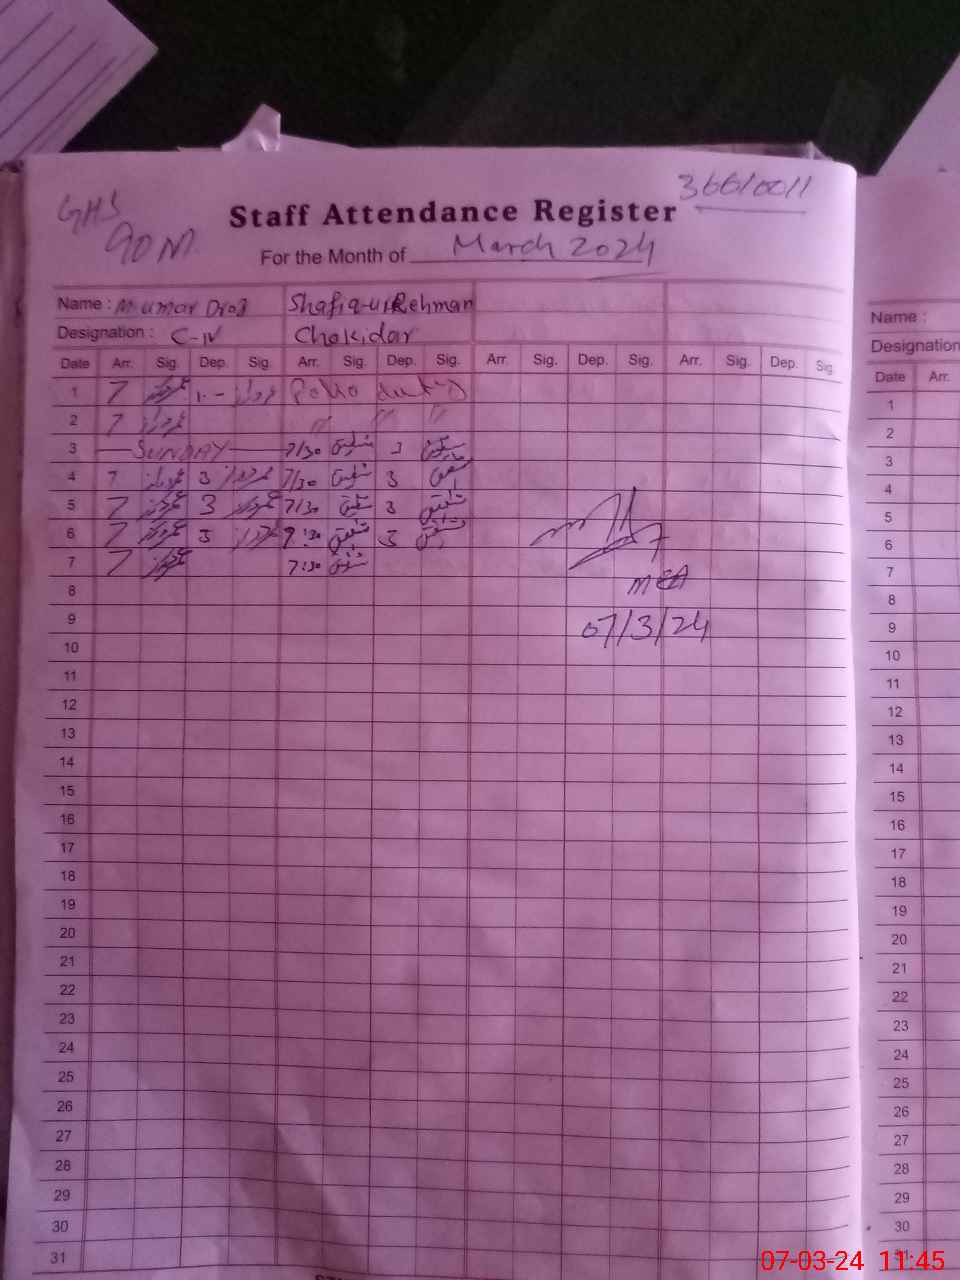 GHS
90 M.
36610011
Staff Attendance Register
For the Month of March 2024
Name : M. umar Draz Shafiq-ur-Rehman
Designation : C-IV Chokidar
Date Arr. Sig. Dep. Sig. Arr. Sig. Dep. Sig. Arr. Sig. Dep. Sig. Arr. Sig. Dep. Sig.
1 7 عمردراز 1 - عمردراز Polio duty
2 7 عمردراز " " "
3 SUNDAY 7/30 شفیق 3 شفیق
4 7 عمردراز 3 عمردراز 7/30 شفیق 3 شفیق
5 7 عمردراز 3 عمردراز 7/30 شفیق 3 شفیق
6 7 عمردراز 3 عمردراز 7:30 شفیق 3 شفیق
7 7 عمردراز 7:30 شفیق
MEA
07/3/24
8
9
10
11
12
13
14
15
16
17
18
19
20
21
22
23
24
25
26
27
28
29
30
31
Name :
Designation
Date Arr.
1
2
3
4
5
6
7
8
9
10
11
12
13
14
15
16
17
18
19
20
21
22
23
24
25
26
27
28
29
30
31
07-03-24 11:45